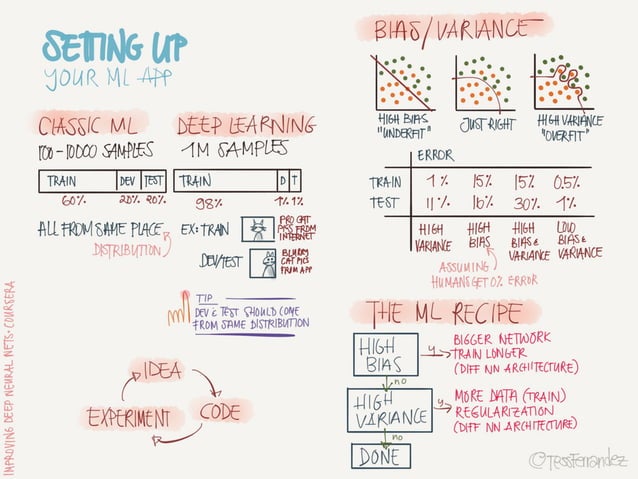 SETTING UP
YOUR ML APP
CLASSIC ML
100-10000 SAMPLES
TRAIN DEV TEST
60% 20% 20%
ALL FROM SAME PLACE
DISTRIBUTION
DEEP LEARNING
1M SAMPLES
TRAIN D T
98% 1% 1%
EX: TRAIN
PRO CAT
PICS FROM
INTERNET
DEV/TEST
BLURRY
CAT PICS
FROM APP
TIP
DEV & TEST SHOULD COME
FROM SAME DISTRIBUTION
IDEA
CODE
EXPERIMENT
BIAS/VARIANCE
HIGH BIAS
"UNDERFIT"
JUST RIGHT
HIGH VARIANCE
"OVERFIT"
ERROR
TRAIN 1% 15% 15% 0.5%
TEST 11% 16% 30% 1%
HIGH VARIANCE
HIGH BIAS
HIGH BIAS & VARIANCE
LOW BIAS & VARIANCE
ASSUMING
HUMANS GET 0% ERROR
THE ML RECIPE
HIGH
BIAS
Y
BIGGER NETWORK
TRAIN LONGER
(DIFF NN ARCHITECTURE)
no
HIGH
VARIANCE
Y
MORE DATA (TRAIN)
REGULARIZATION
(DIFF NN ARCHITECTURE)
no
DONE
IMPROVING DEEP NEURAL NETS • COURSERA
©TessFerrandez